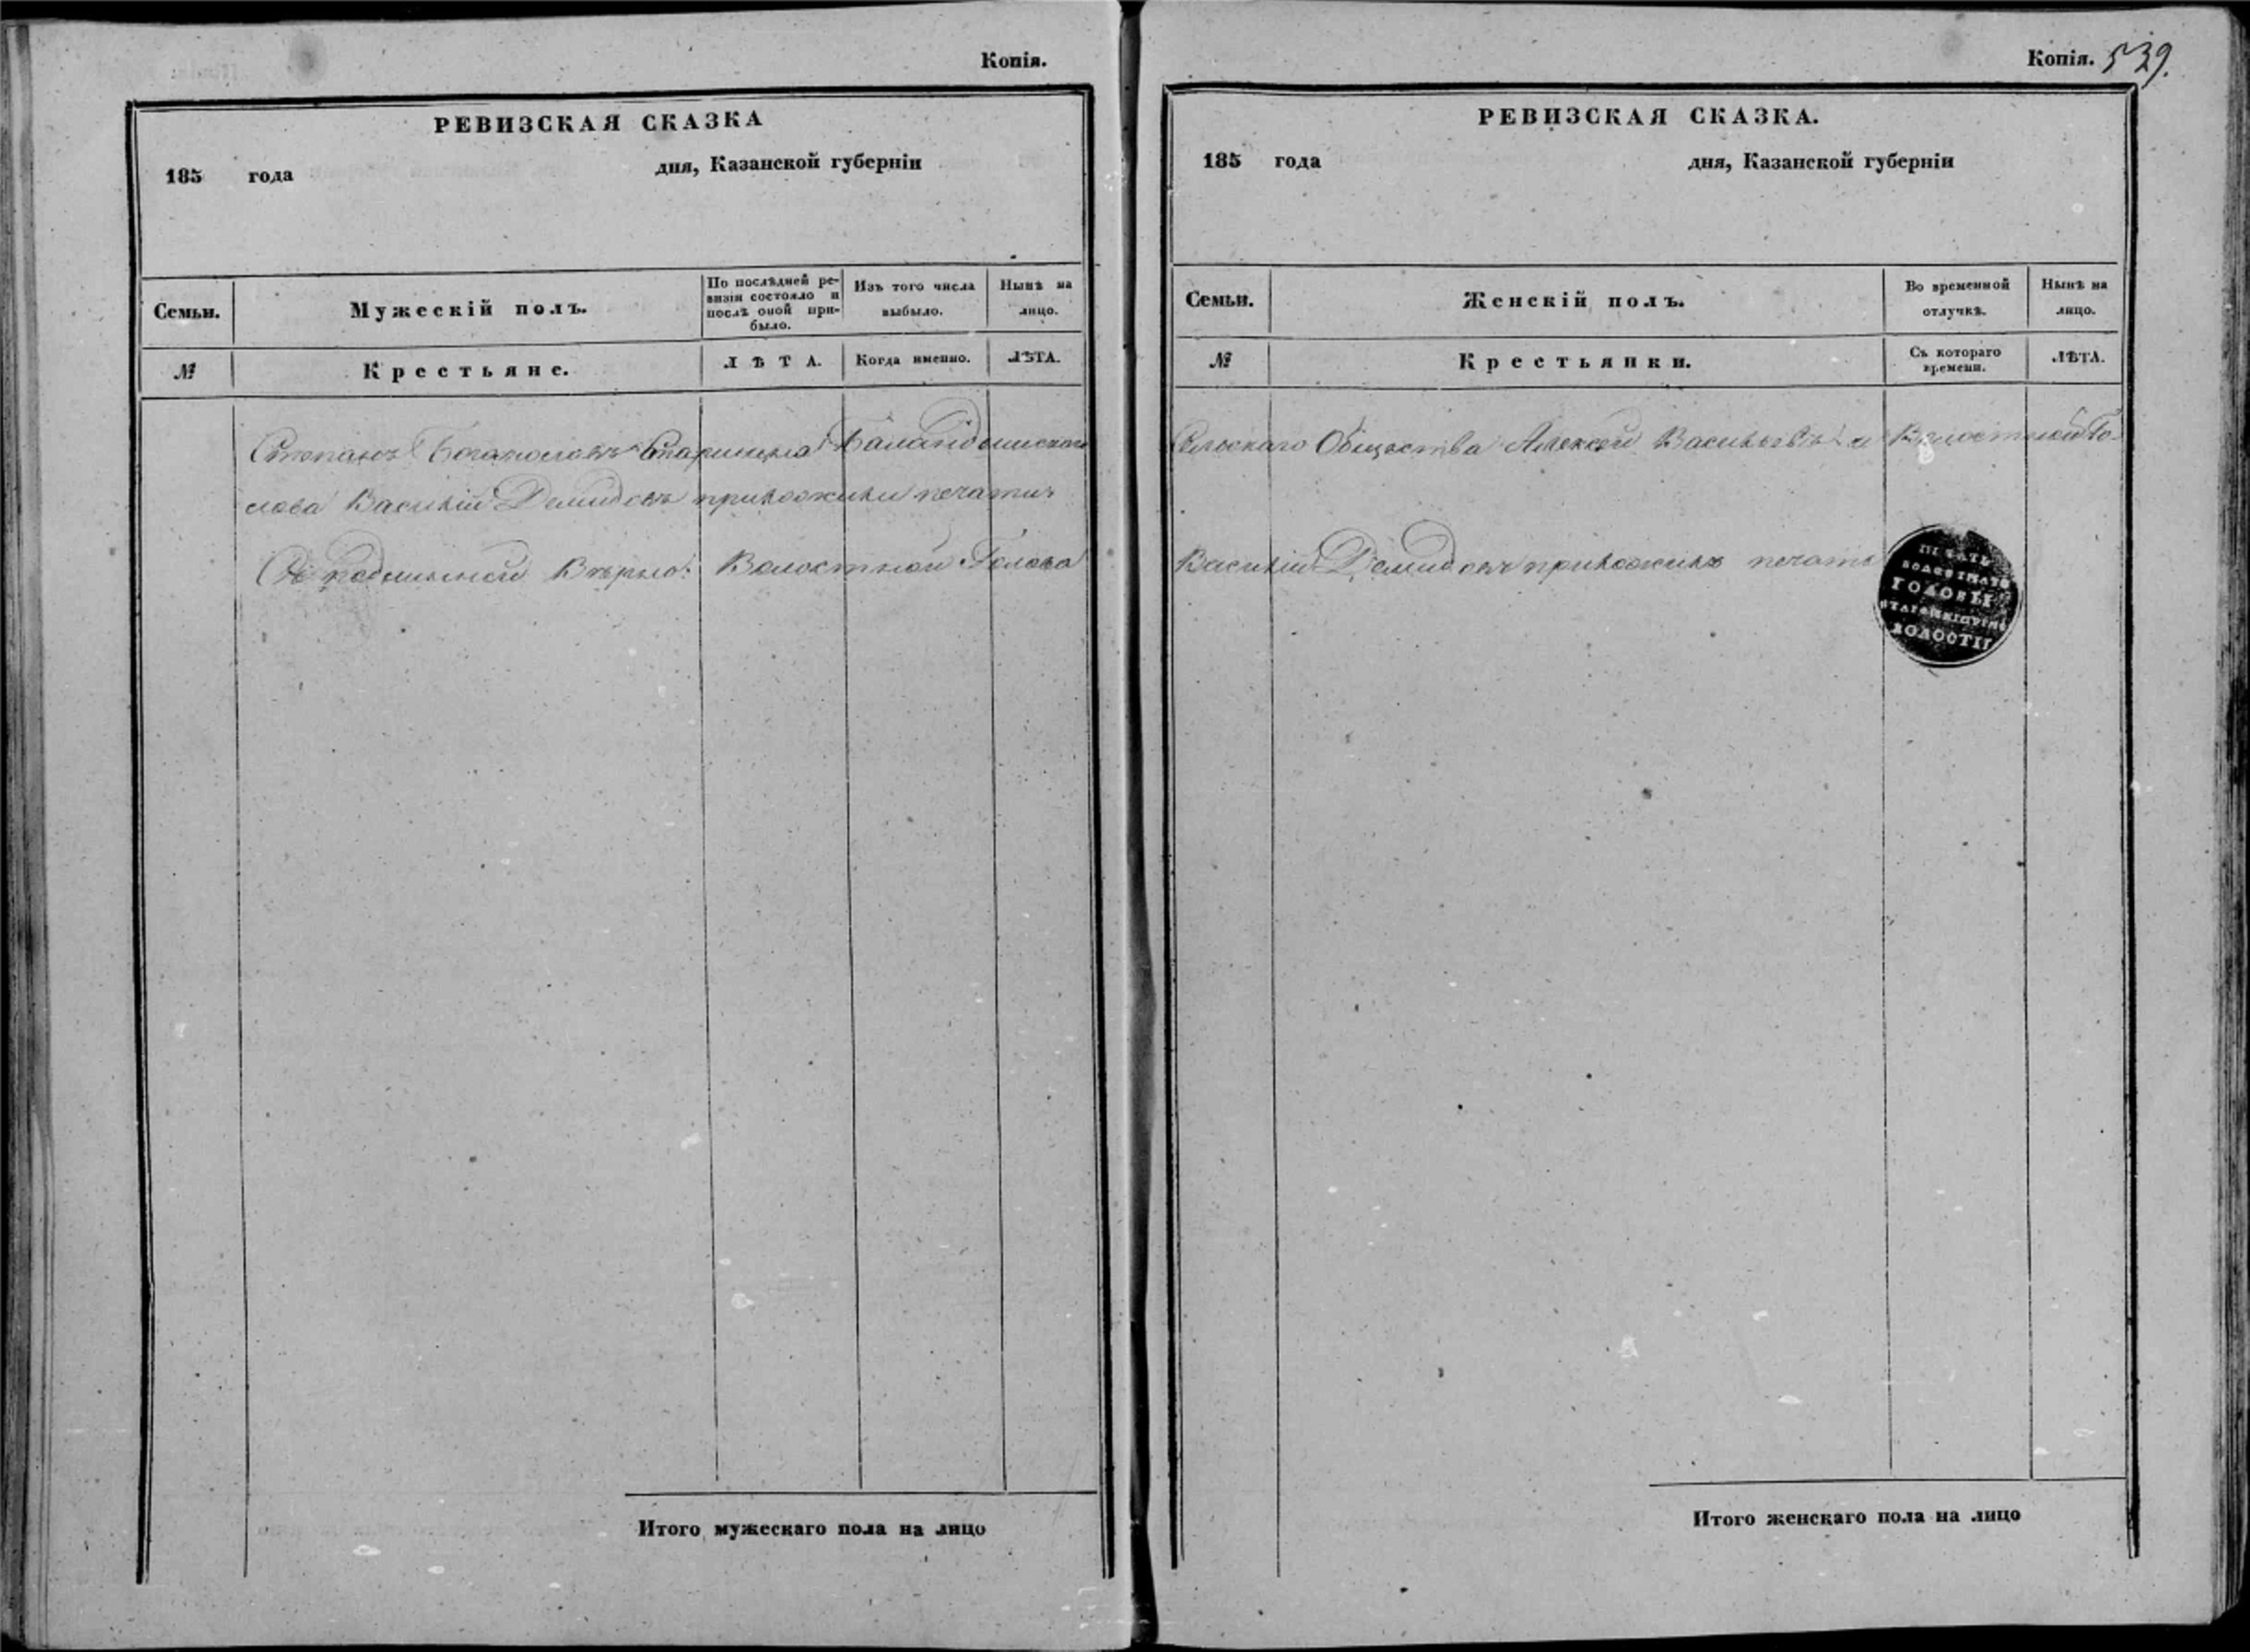 Копія.
РЕВИЗСКАЯ СКАЗКА
185 года дня, Казанской губерніи
Семьи. Мужескій полъ. По послѣдней ре-
визіи состояло и
послѣ оной при-
было. Изъ того числа
выбыло. Нынѣ на
лицо.
№ Крестьяне. ЛѢТА. Когда именно. ЛѢТА.
Степанъ Старшина
лова Василій Демидовъ приложили печати
Съ подлинной Вѣрно: Волостной Голова
Итого мужескаго пола на лицо
Копія. 539.
РЕВИЗСКАЯ СКАЗКА.
185 года дня, Казанской губерніи
Семьи. Женскій полъ. Во временной
отлучкѣ. Нынѣ на
лицо.
№ Крестьянки. Съ котораго
времени. ЛѢТА.
Сельскаго Общества Алексей Васильевъ и Волостной Го-
Василій Демидовъ приложилъ печать
ПЕЧАТЬ
ВОЛОСТНАГО
ГОЛОВЫ
ВОЛОСТИ
Итого женскаго пола на лицо